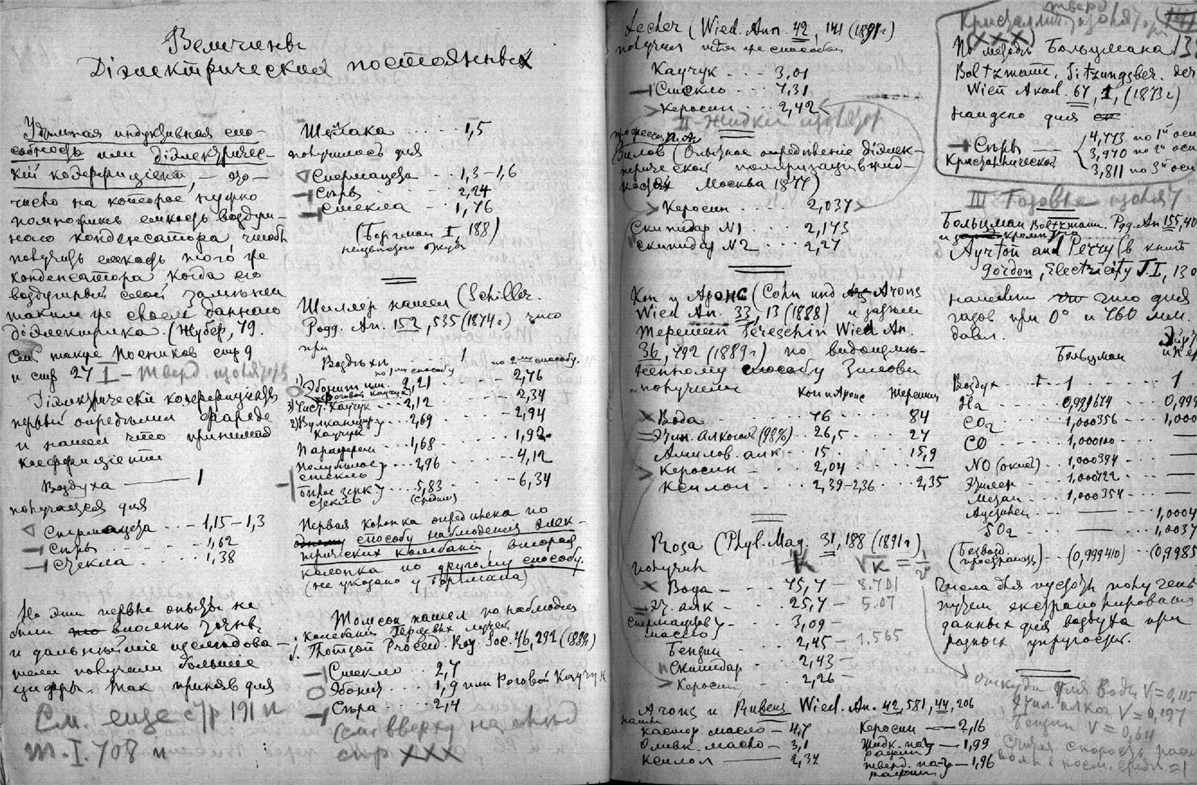 Величины
Діэлектрической постоянны
Удѣльная индуктивная спо-
собность или діэлектричес-
кій коэффиціентъ, — это
число на которое нужно
помножить емкость воздуш-
наго конденсатора чтобы
получить емкость того же
конденсатора когда его
воздушный слой замѣненъ
таким же слоем даннаго
діэлектрика. (Жубер, 79.
См. также Посников стр 9
и стр 27 I – тверд. изоляторы
Діэлектрическій коэффиціентъ
первый определилъ Фараде
и нашелъ что принимая
коэффиціентъ
Воздуха — 1
получается для
Спермацета — 1,15–1,3
Сѣры — 1,62
Стекла — 1,38
Но эти первые опыты не
были вполнѣ точны
и дальнѣйшіе изслѣдова-
тели получили большіе
цифры. Так приняв для
См. еще стр 191 и
т. I. 708 и
Шеллака 1,5
получилось для
Спермацета 1,3–1,6
Сѣры 2,24
Стекла 1,76
(Боргман I, 188)
Шиллер нашел (Schiller.
Pogg. An. 152, 535 (1874г) что
при
Воздухѣ 1
по 1му способу по 2му способу.
1) Эбонит или роговой каучук 2,21 2,76
3) Чист. Каучук 2,12 2,34
2) Вулканизир. Каучук 2,69 2,94
Парафин 1,68 1,92
Полубѣлое стекло 2,96 4,12
Бѣлое зерк. стекло 5,83 6,34
(среднее)
Первая колонка опредѣлена по
способу наблюденія элек-
трических колебаній, вторая
колонка по другому способу.
(не указано у Боргмана)
Томсон нашел по наблюден.
колебаній Герцевых лучей
J. Thomson Proceed. Roy. Soc. 46, 292 (1889)
Стекло 2,7
Эбонит 1,9 или Роговой Каучук
Сѣра 2,4
(см вверху на
стр ХХХ
Lecher (Wied. Ann. 42, 141 (1891г)
получил тѣм же способом
Каучук 3,01
Стекло 7,31
Керосин 2,42
II – Жидкіе изолятор
профессор П.А.
Зилов (Опытное опредѣленіе діэлек-
трической поляризаціи жид-
костей Москва 1877)
Керосин 2,037
Скипидар N1 2,173
Скипидар N2 2,27
Кон и Аронс (Cohn und Arons
Wied An. 33, 13 (1888) и затѣм
Терешин Tereschin Wied An
36, 792 (1889г) по видоизмѣ-
ненному способу Зилова
получили
Кон и Аронс Терешин
Вода 76 84
Этил. Алкоголь (98%) 26,5 27
Амилов. алк 15 15,9
Керосин 2,04
Ксилол 2,39–2,36 2,35
Rosa (Phyl. Mag. 31, 188 (1891г)
получил K √K = 1/v
Вода — 75,7 – 8.701
Эт. алк 25,7 – 5.07
Спермацетов. масло 3,09 –
Бензин 2,45 – 1.565
Скипидар 2,43 –
Керосин 2,26 –
Arons и Rubens Wied. An. 42, 581, 44, 206
нашли
кастор. масло — 4,7 Керосин — 2,16
Оливк. масло — 3,1 Жидк. парафин — 1,99
Ксилол — 2,37 тверд. парафин — 1,96
тверд.
Кристаллич. изолятор
(ХХХ)
По методу Больцмана
Boltzmann, Sitzungsber. der
Wien Akad. 67, 1, (1873г)
найдено для
Сѣры
Кристаллической
4,773 по 1й оси
3,970 по 2й оси
3,811 по 3й оси
III Газовые изолят
Больцман Boltzmann. Pogg. An 155, 40
Ayrton and Perry (в книге
Gordon, Electricity T. I, 130
нашли что для
газов при 0° и 760 мм.
давл.
Больцман
Воздух 1 1
H₂ 0,999674 0,999
CO₂ 1,000356 1,000
CO 1,000100 —
NO (окись) 1,000394 —
Этилен 1,000722 —
Метан 1,000354 —
Ацетилен — 1,0004
SO₂ — 1,0037
(Безвозд. пространство) (0,999410) (0,9985
Числа для пустоты получены
путем экстраполированія
данных для воздуха при
разных упругостях.
откуда для воды V = 0,115
Этил. алког V = 0,197
Бензин V = 0,64
Считая скорость расп
волн в косм. средѣ = 1